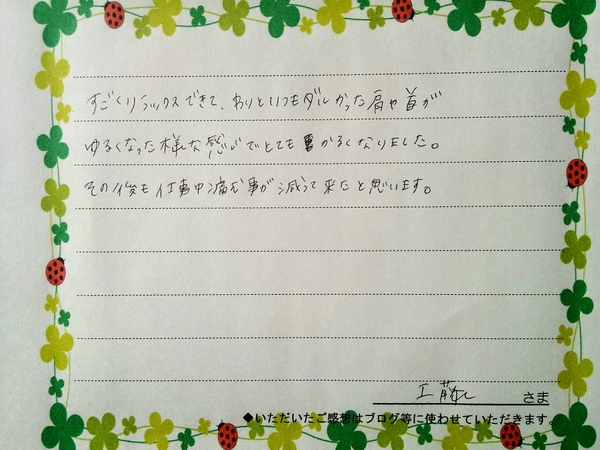 すごくリラックスできて、わりといつもダルかった肩や首が
ゆるくなった様な感じでとてもかるくなりました。
その後も仕事中痛む事が減って来たと思います。
工藤 さま
◆いただいたご感想はブログ等に使わせていただきます。